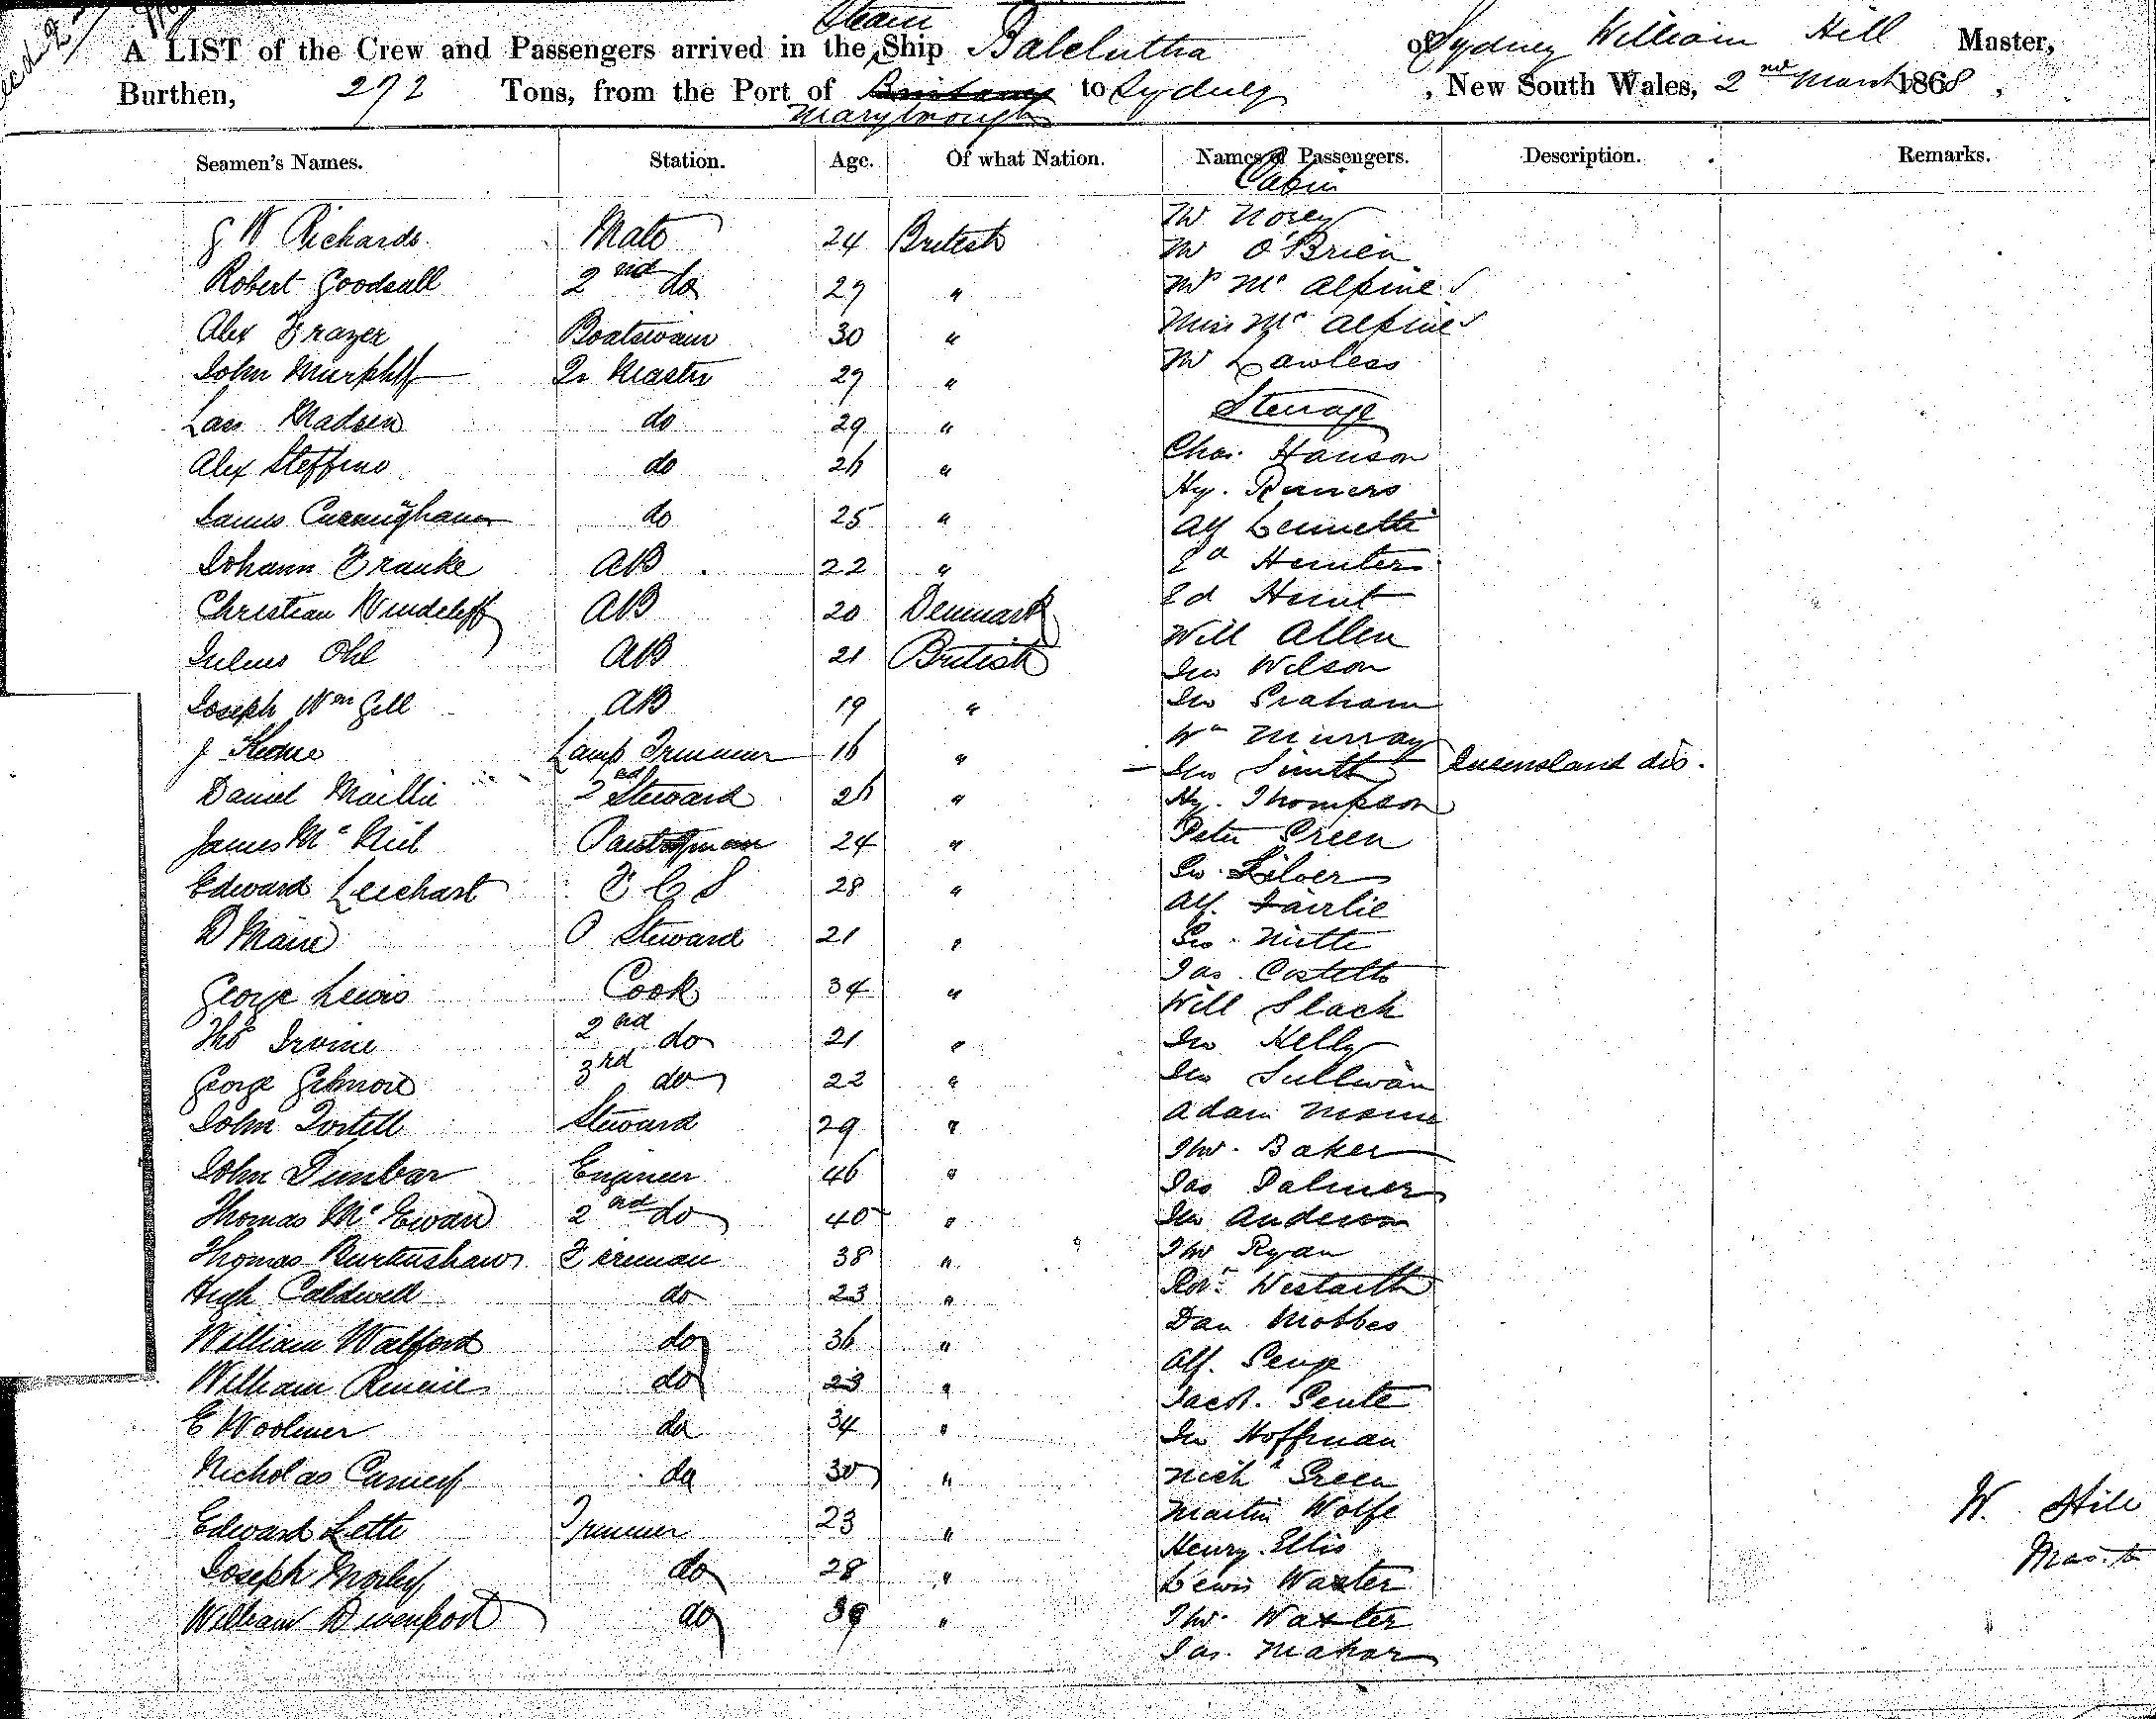 Steam
A LIST of the Crew and Passengers arrived in the Ship Balclutha of Sydney William Hill Master,
Burthen, 272 Tons, from the Port of to Sydney, New South Wales, 2nd March 1868,
Maryborough
Seamen's Names. Station. Age. Of what Nation. Names of Passengers. Description. Remarks.
Cabin
Mr Norey
G W Richards Mate 24 British
Mr O'Brien
Robert Goodsall 2nd do 27 "
Mr Mc Alpine
Alex Frazer Boatswain 30 "
Miss Mc Alpine
John Murphy Qr Master 27 "
Mr Lawless
Lars Madsen do 29 "
Steerage
Alex Steffino do 26 "
Chas. Hanson
Hy. Reiners
James Cunningham do 25 "
Alf Lennette
Johann Franke AB 22 "
Ed Hunter
Christian Windeleff AB 20 Denmark
Ed Hunt
Will Allen
Julius Ohl AB 21 British
Jno Wilson
Joseph Wm Gill AB 19 "
Jno Graham
Wm Murray
J Lamp Trimmer 16 "
Jno Smith Queensland dis.
Daniel Maillie 2nd Steward 26 "
Hy. Thompson
James Mc Neil Pantryman 24 "
Peter Green
Edward Leechart F C S 28 "
Geo. Silver
Alf. Fairlie
D Maire Steward 21 "
Geo. Nutte
Jas. Costello
George Lewis Cook 34 "
Will Slack
Thos Irvine 2nd do 21 "
Jno Kelly
George Gilmore 3rd do 22 "
Jno Sullivan
John Tostell Steward 29 "
Adam
Thos. Baker
John Dunbar Engineer 46 "
Jas Palmer
Thomas Mc Ewan 2nd do 40 "
Jno Anderson
Thomas Burtenshaw Fireman 38 "
Thos Ryan
Hugh Caldwell do 23 "
Robt. Westarth
Dan Mobbes
William Walford do 36 "
Alf.
William Rennie do 23 "
Jacob. Pente
E Woolmer do 34 "
Jno Hoffman
Nicholas Carney do 30 "
Nichs Green
Martin Wolfe
W. Hill
Edward Lette Trimmer 23 "
Henry Ellis
Master
Joseph Morley do 28 "
Lewis Waxter
William Divenport do 39 "
Thos. Waxter
Jas. Mahar